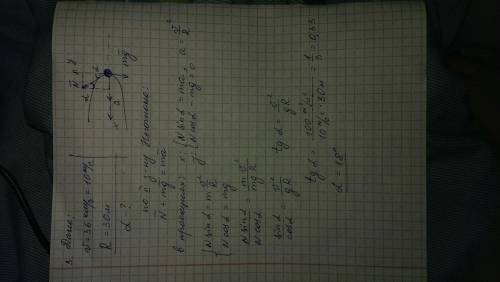 3. Дано:
v = 36 км/ч = 10 м/с
R = 30 м
α - ?
N y
α
x a mg
по 2 з-ну Ньютона:
N + mg = ma
в проекциях: x: { N sinα = ma, a = v²/R
y: { N cosα - mg = 0
{ N sinα = m v²/R
{ N cosα = mg
N sinα / N cosα = m v² / mg R
sinα / cosα = v² / gR tg α = v² / gR
tg α = 100 м²/с² / 10 м/с² · 30 м = 1/3 = 0,33
α = 18°